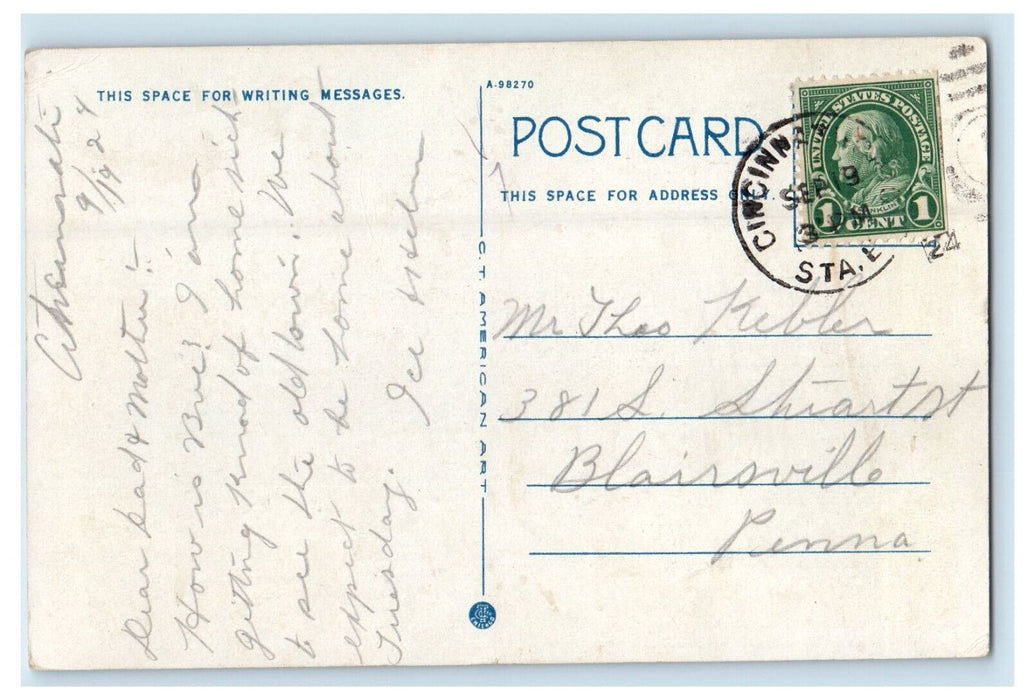 THIS SPACE FOR WRITING MESSAGES.
Cincinnati
9/19 24
Dear Dad & Mother:-
How is Bue? I am
getting kind of home sick
to see the old town. We
expect to be home about
Tuesday.
A-98270
POST CARD
THIS SPACE FOR ADDRESS ONLY.
C.T. AMERICAN ART
CHICAGO
UNITED STATES POSTAGE
FRANKLIN
1 CENT 1
CINCINNA
SEP 9
3 PM
STA. E
24
Mr Theo Kebler
381 S. Stuart st
Blairsville
Penna